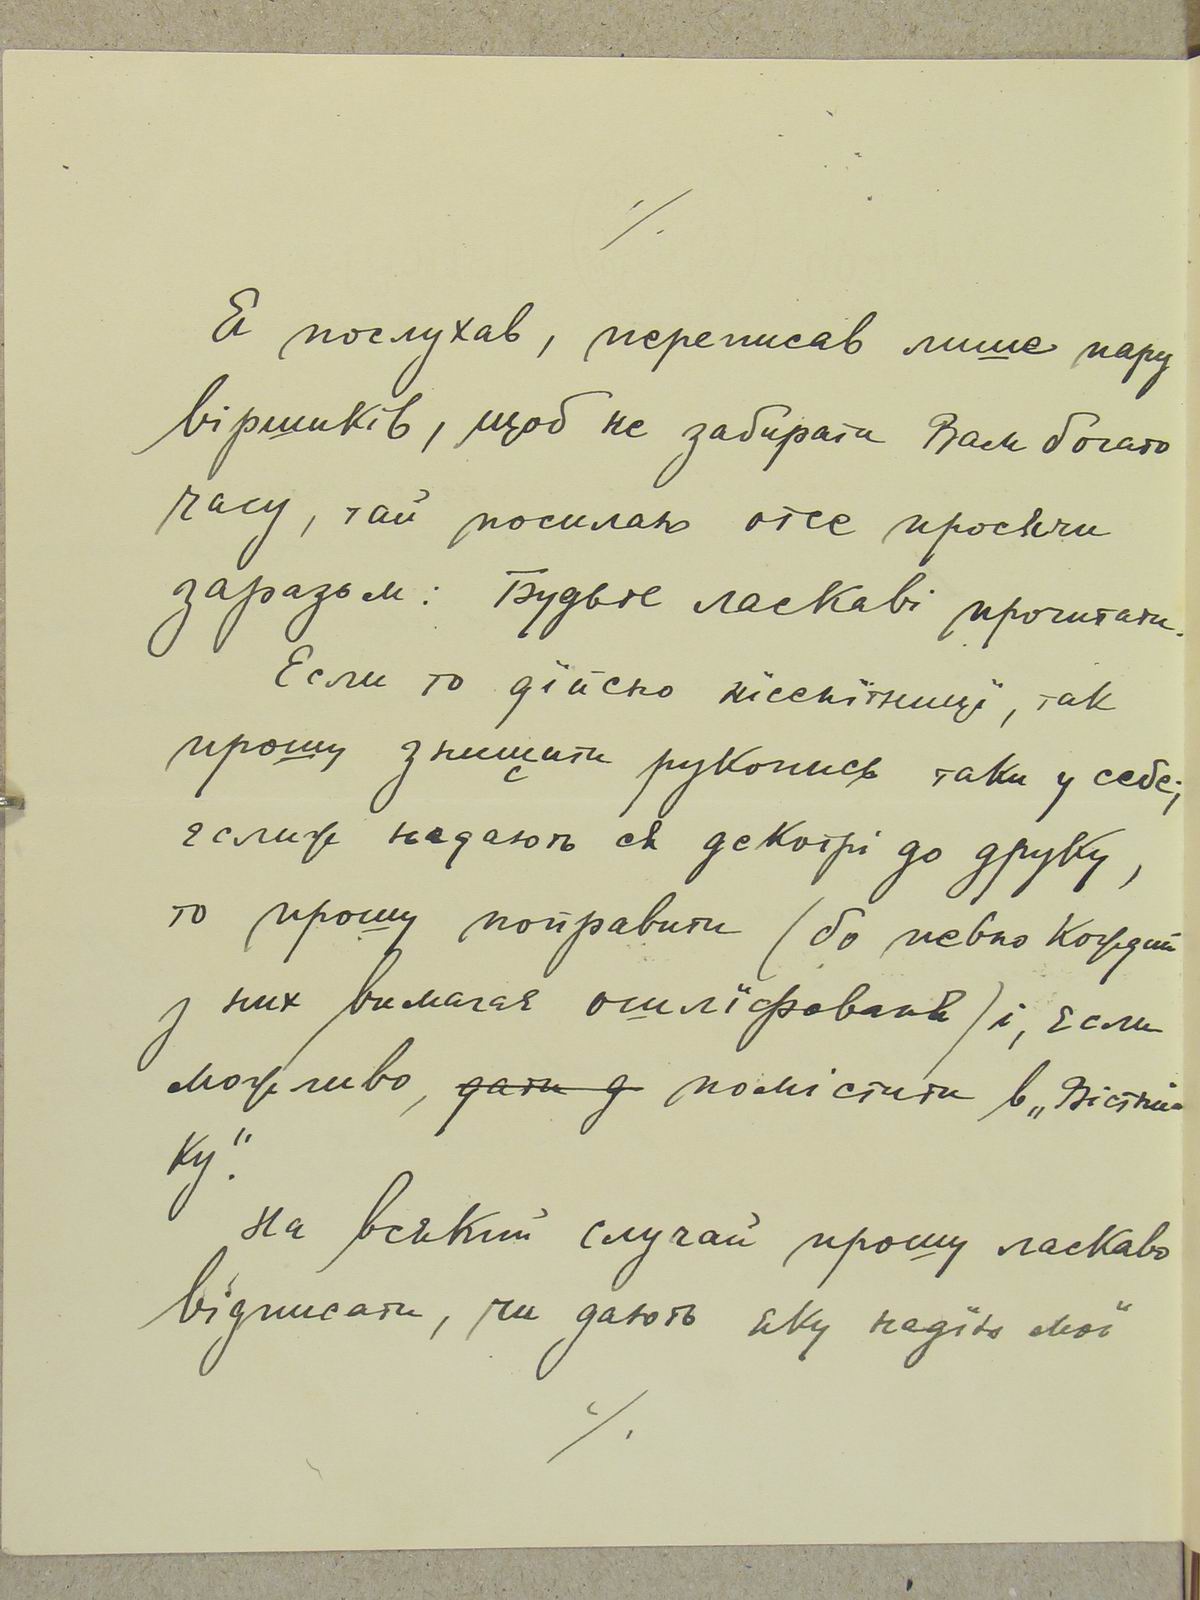 ./.
Я послухав, переписав лише пару
віршиків, щоб не забирати Вам богато
часу, тай посилаю отсе просячи
заразом: Будьте ласкаві прочитати.
Если то дїйсно нїсенїтницї, так
прошу знищити рукопись таки у себе;
еслиж надають ся декотрі до друку,
то прошу поправити (бо певно кождий
з них вимагає ошлїфованя) і, если
можливо, дати д помістити в „Вістни-
ку".
На всякий случай прошу ласкаво
відписати, чи дають яку надїю мої
./.